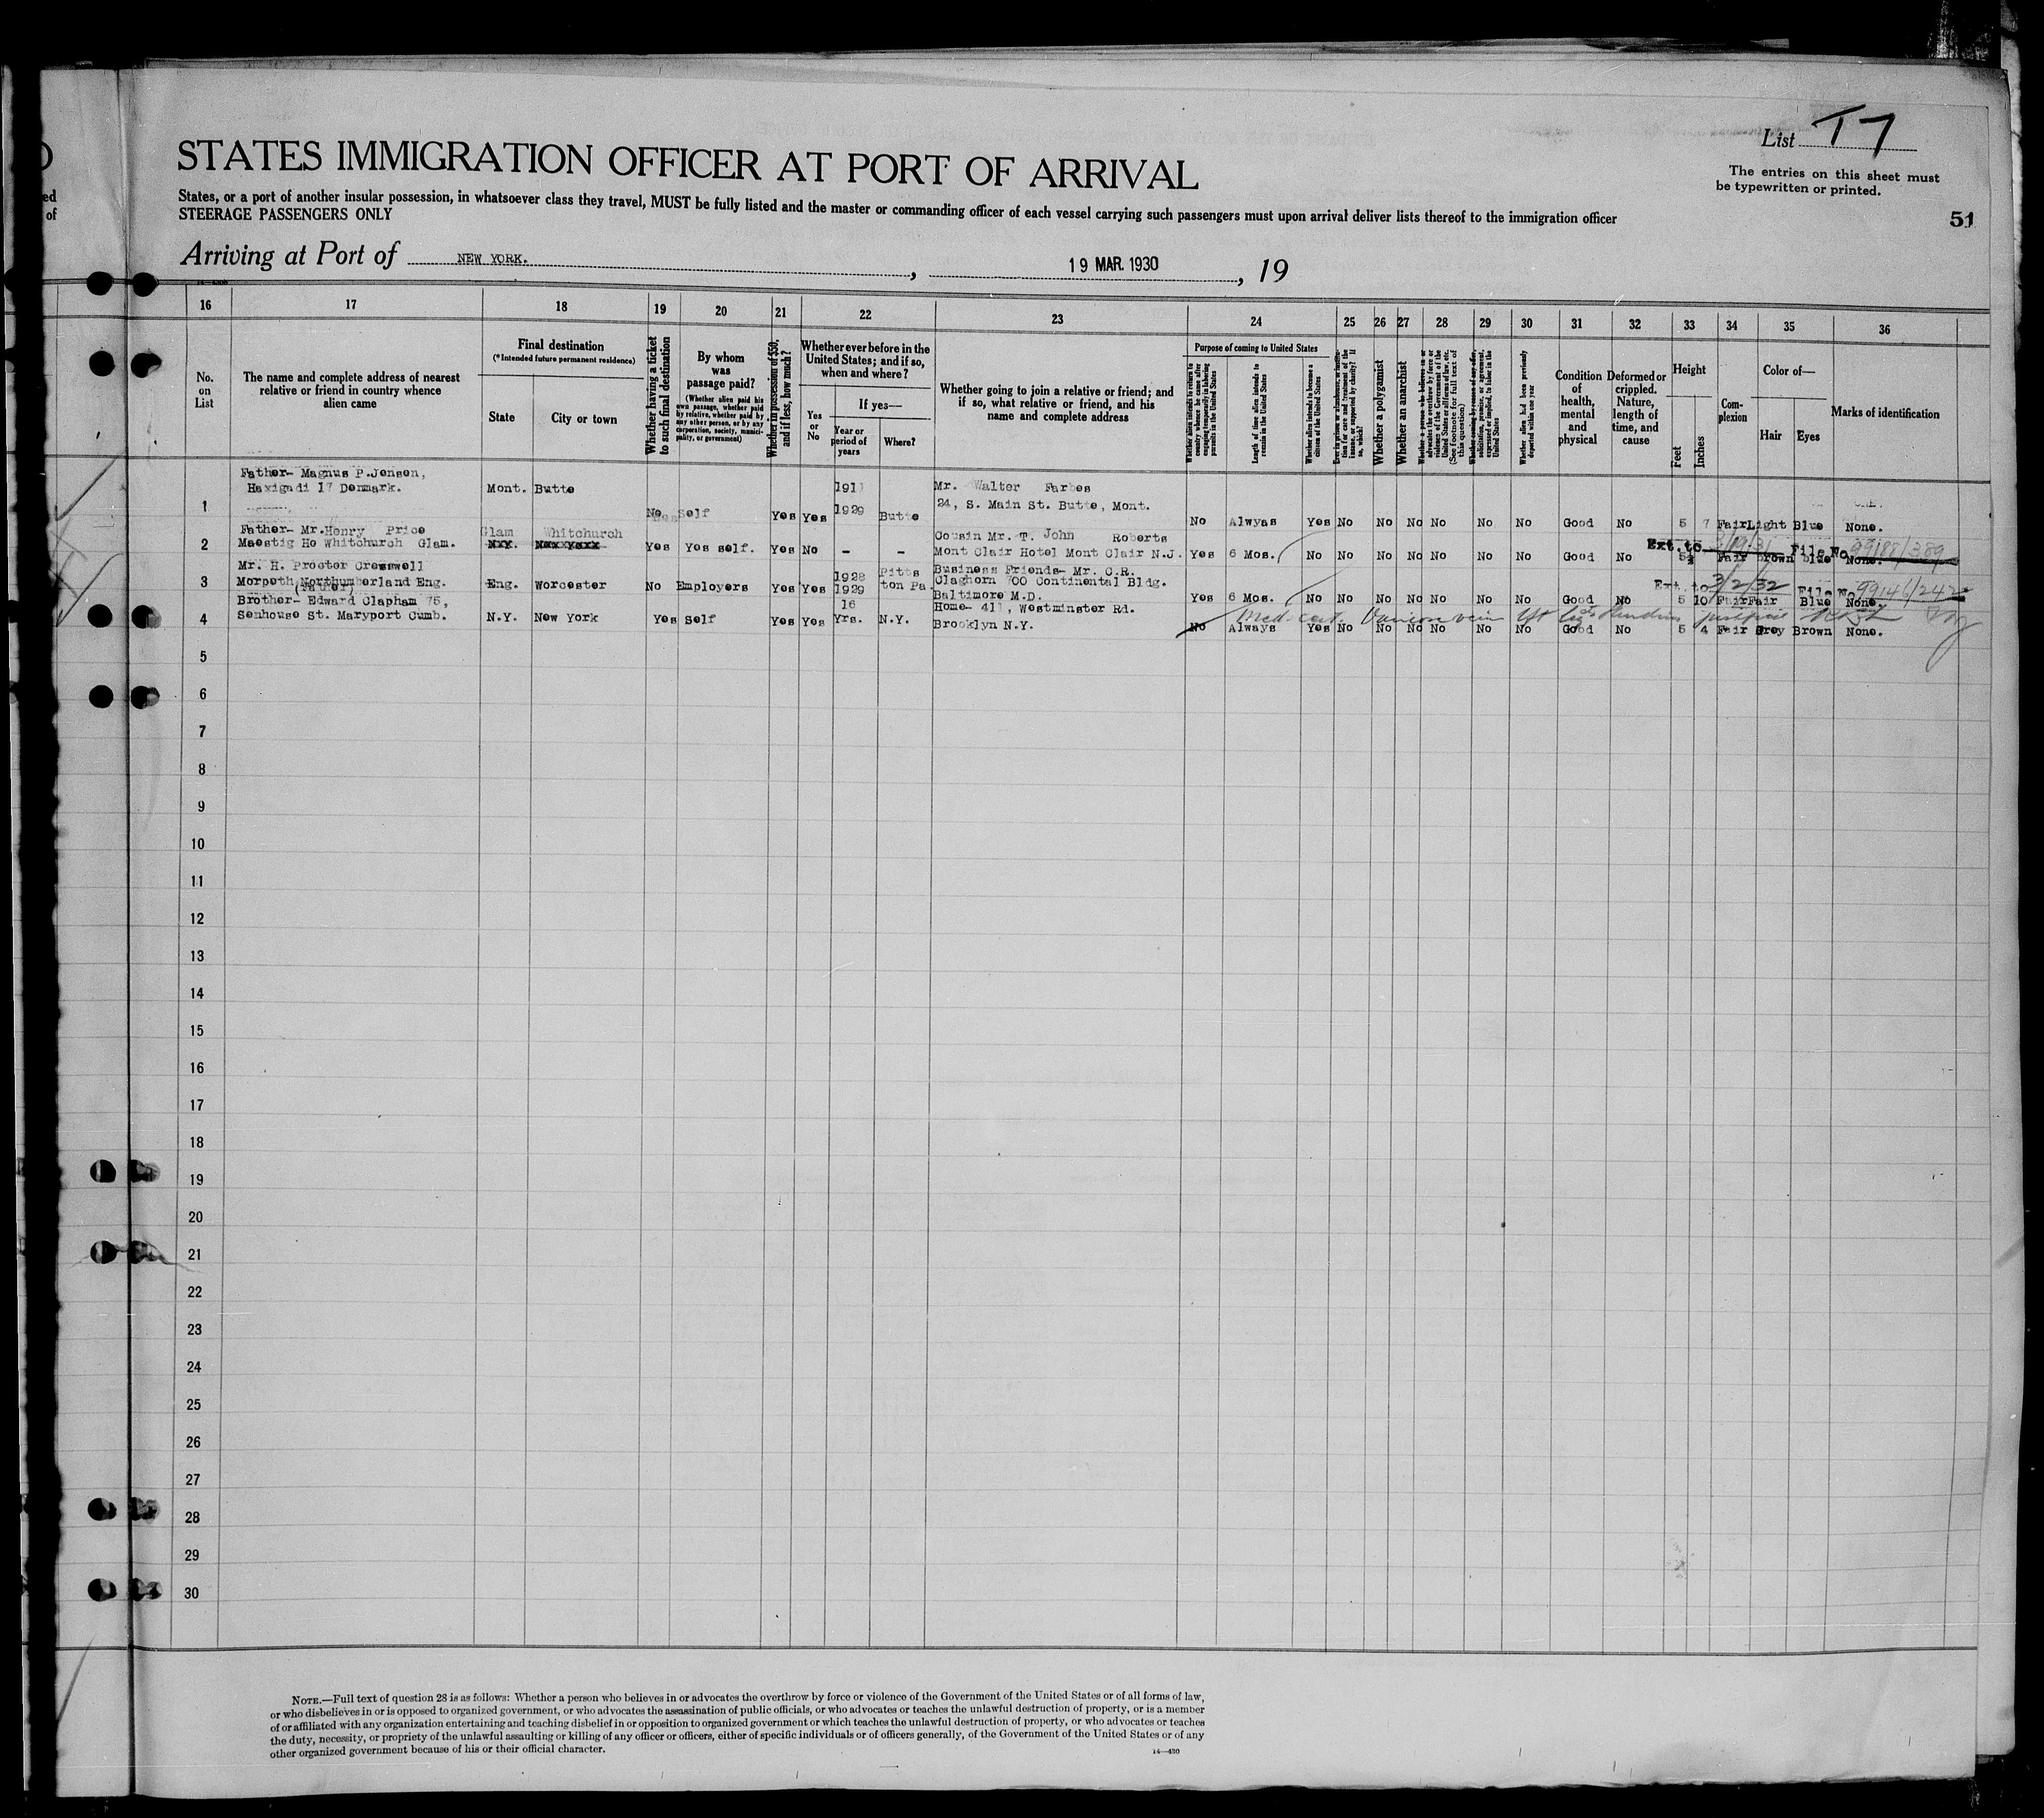 List T7
STATES IMMIGRATION OFFICER AT PORT OF ARRIVAL
The entries on this sheet must
be typewritten or printed.
States, or a port of another insular possession, in whatsoever class they travel, MUST be fully listed and the master or commanding officer of each vessel carrying such passengers must upon arrival deliver lists thereof to the immigration officer
STEERAGE PASSENGERS ONLY
51
Arriving at Port of NEW YORK. , 19 MAR. 1930 , 19
16 17 18 19 20 21 22 23 24 25 26 27 28 29 30 31 32 33 34 35 36
No. on List
The name and complete address of nearest relative or friend in country whence alien came
Final destination
(*Intended future permanent residence)
State
City or town
Whether having a ticket to such final destination
By whom was passage paid?
(Whether alien paid his own passage, whether paid by relative, whether paid by any other person, or by any corporation, society, municipality, or government)
Whether in possession of $50, and if less, how much?
Whether ever before in the United States; and if so, when and where?
Yes or No
If yes—
Year or period of years
Where?
Whether going to join a relative or friend; and if so, what relative or friend, and his name and complete address
Purpose of coming to United States
Whether alien intends to return to country whence he came after engaging temporarily in laboring pursuits in the United States
Length of time alien intends to remain in the United States
Whether alien intends to become a citizen of the United States
Whether a polygamist
Whether an anarchist
Whether alien had been previously deported within one year
Condition of health, mental and physical
Deformed or crippled. Nature, length of time, and cause
Height
Feet
Inches
Complexion
Color of—
Hair
Eyes
Marks of identification
Father- Magnus P.Jensen,
Haxigadi 17 Denmark.
1 Mont. Butte No Self Yes Yes 1911 1929 Butte
Mr. Walter Farbes
24, S. Main St. Butte, Mont.
No Alwyas Yes No No No No No No Good No 5 7 Fair Light Blue None.
Father- Mr.Henry Price
Maestig Ho Whitchurch Glam.
2 Glam Whitchurch Yes Yes self. Yes No - -
Cousin Mr. T. John Roberts
Mont Clair Hotel Mont Clair N.J.
Yes 6 Mos. No No No No No No No Good No 5 Fair Brown blue None.
Ext. to 3/19/31 File No. 99188/389
Mr. H. Procter Cresswell
Morpeth Northumberland Eng.
(Father)
3 Eng. Worcester No Employers Yes Yes 1928 1929 Pitts ton Pa.
Business Friends- Mr. C.R.
Claghorn 700 Continental Bldg.
Baltimore M.D.
Yes 6 Mos. No No No No No No No Good No 5 10 Fair Fair Blue None.
Ext. to 3/2/32 File No.
Brother- Edward Clapham 75,
Senhouse St. Maryport Cumb.
4 N.Y. New York Yes Self Yes Yes 16 Yrs. N.Y.
Home- 411, Westminster Rd.
Brooklyn N.Y.
Med. cert.
No Always Yes No No No No No No Good No 5 4 Fair Grey Brown None.
5
6
7
8
9
10
11
12
13
14
15
16
17
18
19
20
21
22
23
24
25
26
27
28
29
30
NOTE.—Full text of question 28 is as follows: Whether a person who believes in or advocates the overthrow by force or violence of the Government of the United States or of all forms of law,
or who disbelieves in or is opposed to organized government, or who advocates the assassination of public officials, or who advocates or teaches the unlawful destruction of property, or is a member
of or affiliated with any organization entertaining and teaching disbelief in or opposition to organized government or which teaches the unlawful destruction of property, or who advocates or teaches
the duty, necessity, or propriety of the unlawful assaulting or killing of any officer or officers, either of specific individuals or of officers generally, of the Government of the United States or of any
other organized government because of his or their official character.
14—430